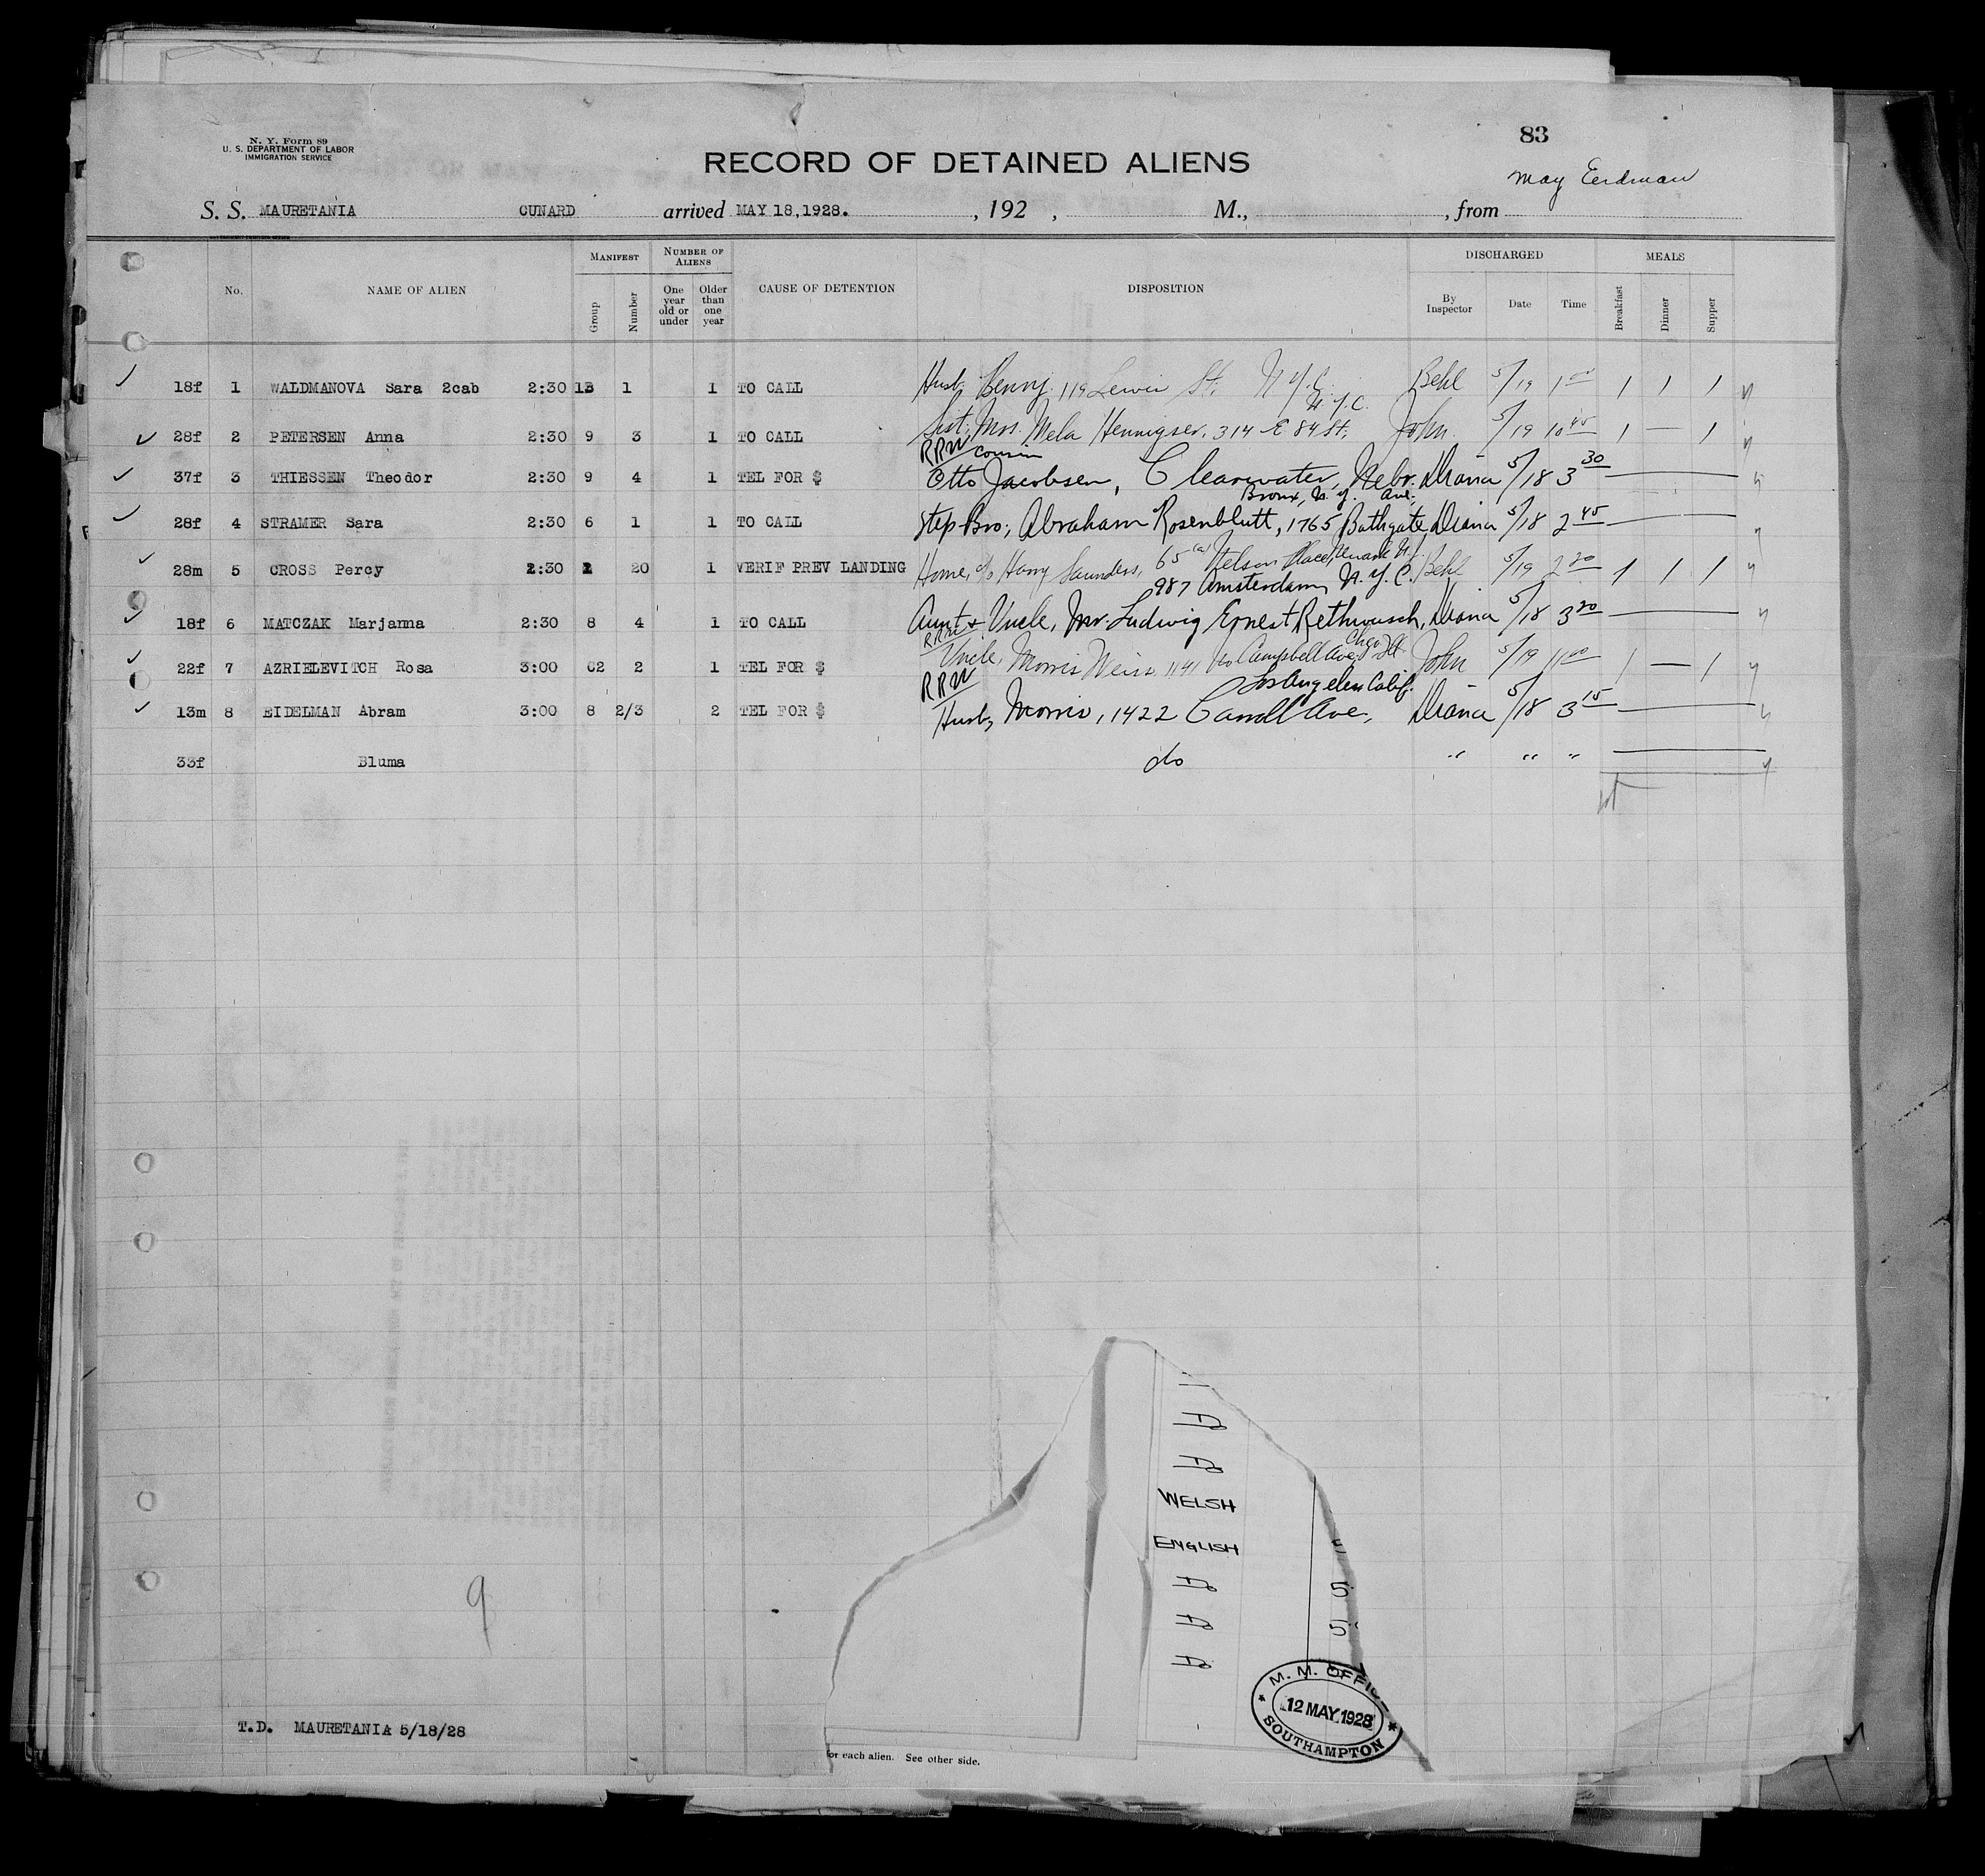 83
N. Y. Form 89
U. S. DEPARTMENT OF LABOR
IMMIGRATION SERVICE
RECORD OF DETAINED ALIENS
May Eerdman
S. S. MAURETANIA CUNARD arrived MAY 18,1928. , 192 , M., , from
No. NAME OF ALIEN MANIFEST Group Number NUMBER OF ALIENS One year old or under Older than one year CAUSE OF DETENTION DISPOSITION DISCHARGED By Inspector Date Time MEALS Breakfast Dinner Supper
18f 1 WALDMANOVA Sara 2cab 2:30 13 1 1 TO CALL Husb. Benny, 119 Lewis St. N.Y.C. Behl 5/19 1 00 1 1 1
N.Y.C.
28f 2 PETERSEN Anna 2:30 9 3 1 TO CALL Sist, Mrs. Mela 314 E 84 St. John 5/19 10 45 1 — 1
RRW cousin
37f 3 THIESSEN Theodor 2:30 9 4 1 TEL FOR $ Otto Jacobsen, Clearwater, Nebr. Diana 5/18 3 30
Bronx, N.Y. Ave.
28f 4 STRAMER Sara 2:30 6 1 1 TO CALL Step Bro; Abraham Rosenblutt, 1765 Bathgate Diana 5/18 2 45
28m 5 CROSS Percy 2:30 1 20 1 VERIF PREV LANDING Home, c/o Harry Saunders, 65 Nelson Place, Newark N.J. Behl 5/19 2 20 1 1 1
987 Amsterdam, N.Y.C.
18f 6 MATCZAK Marjanna 2:30 8 4 1 TO CALL Aunt & Uncle, Mr. Ludwig Ernest Rethwusch, Diana 5/18 3 20
RRW Chgo Ill.
22f 7 AZRIELEVITCH Rosa 3:00 02 2 1 TEL FOR $ Uncle, Morris Weiss, 1141 No Campbell Ave, John 5/19 11 00 1 — 1
RRW Los Angeles Calif.
13m 8 EIDELMAN Abram 3:00 8 2/3 2 TEL FOR $ Husb, Morris, 1422 Carroll Ave, Diana 5/18 3 15
33f Bluma do " " "
Do
Do
WELSH
ENGLISH
Do 5
Do 5
Do
9
M. M. OFFIC
12 MAY 1928
SOUTHAMPTON
T.D. MAURETANIA 5/18/28
for each alien. See other side.